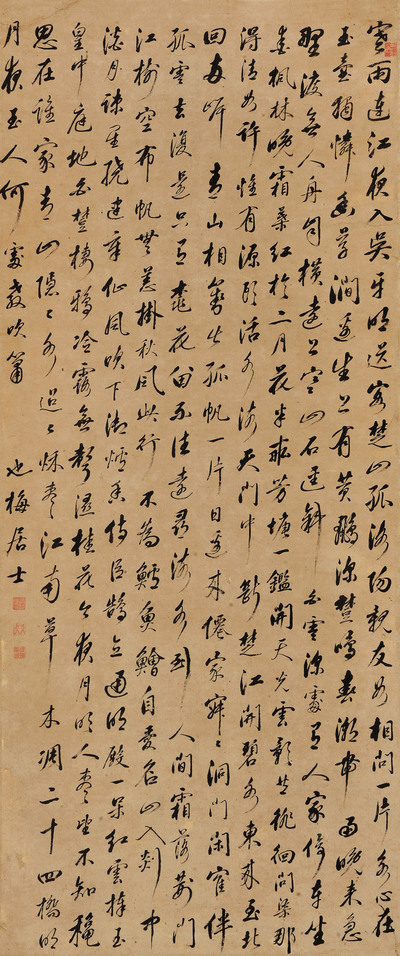 寒雨連江夜入吳平明送客楚山孤洛陽親友如相問一片冰心在
玉壺獨憐幽草澗邊生上有黃鸝深樹鳴春潮帶雨晚來急
野渡無人舟自橫遠上寒山石徑斜白雲深處有人家停車坐
愛楓林晚霜葉紅於二月花半畝芳塘一鑑開天光雲影共徘徊問渠那
得清如許惟有源頭活水流天門中斷楚江開碧水東來至北
回兩岍青山相對出孤帆一片日邊來僊家寂〻洞門閑寉伴
孤雲去復還只有桃花留不住遠尋流水到人間霜落荊門
江樹空布帆無恙掛秋風此行不為鱸魚鱠自愛名山入剡中
淡月疎星繞建章仙風吹下御爐香侍臣鵠立通明殿一朵紅雲捧玉
皇中庭地白樹棲鴉冷露無聲濕桂花今夜月明人盡望不知秋
思在誰家青山隱〻水迢〻秋盡江南草木凋二十四橋明
月夜玉人何處教吹簫 也梅居士